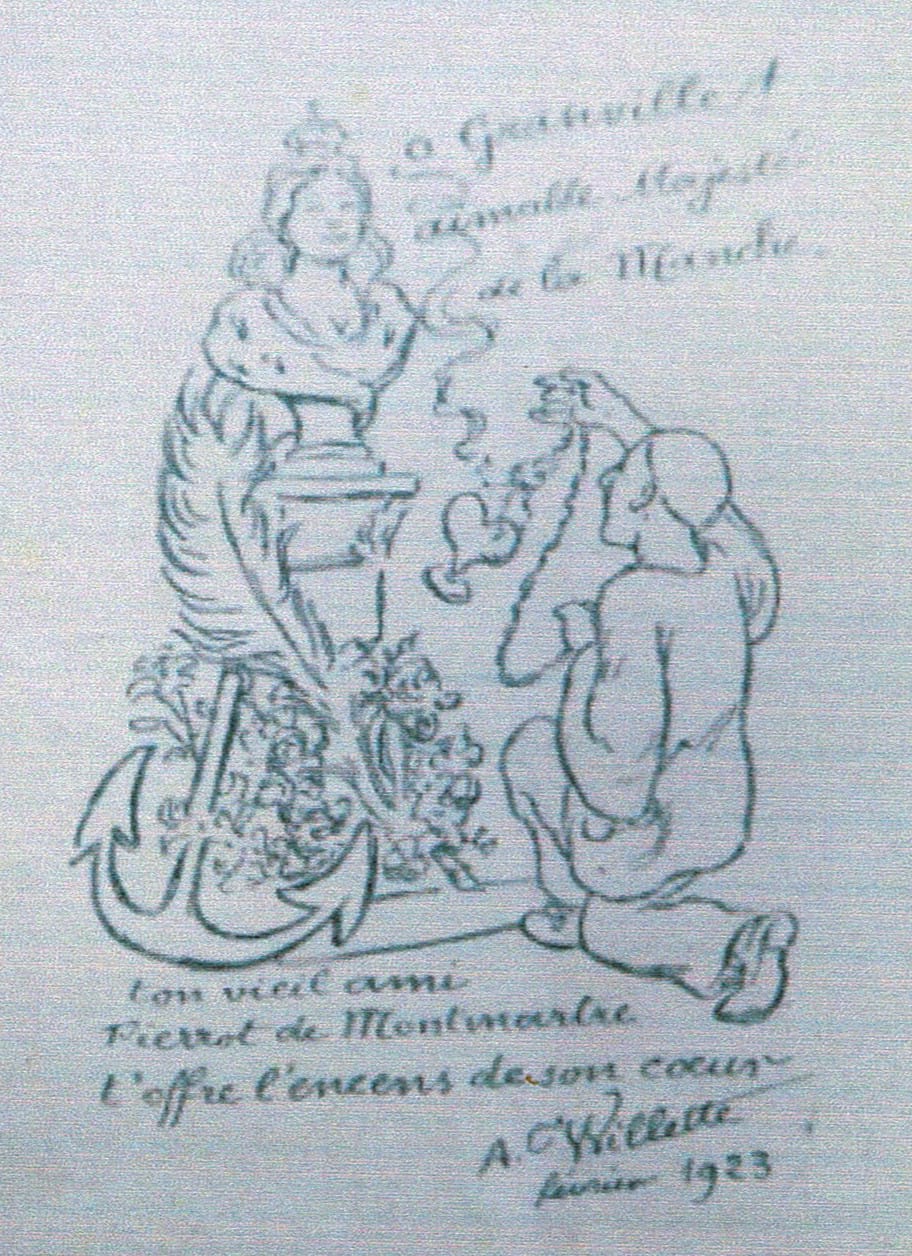 o Granville !
aimable Majesté
de la Manche.
ton vieil ami
Pierrot de Montmartre
t'offre l'encens de son cœur
A. Willette
février 1923